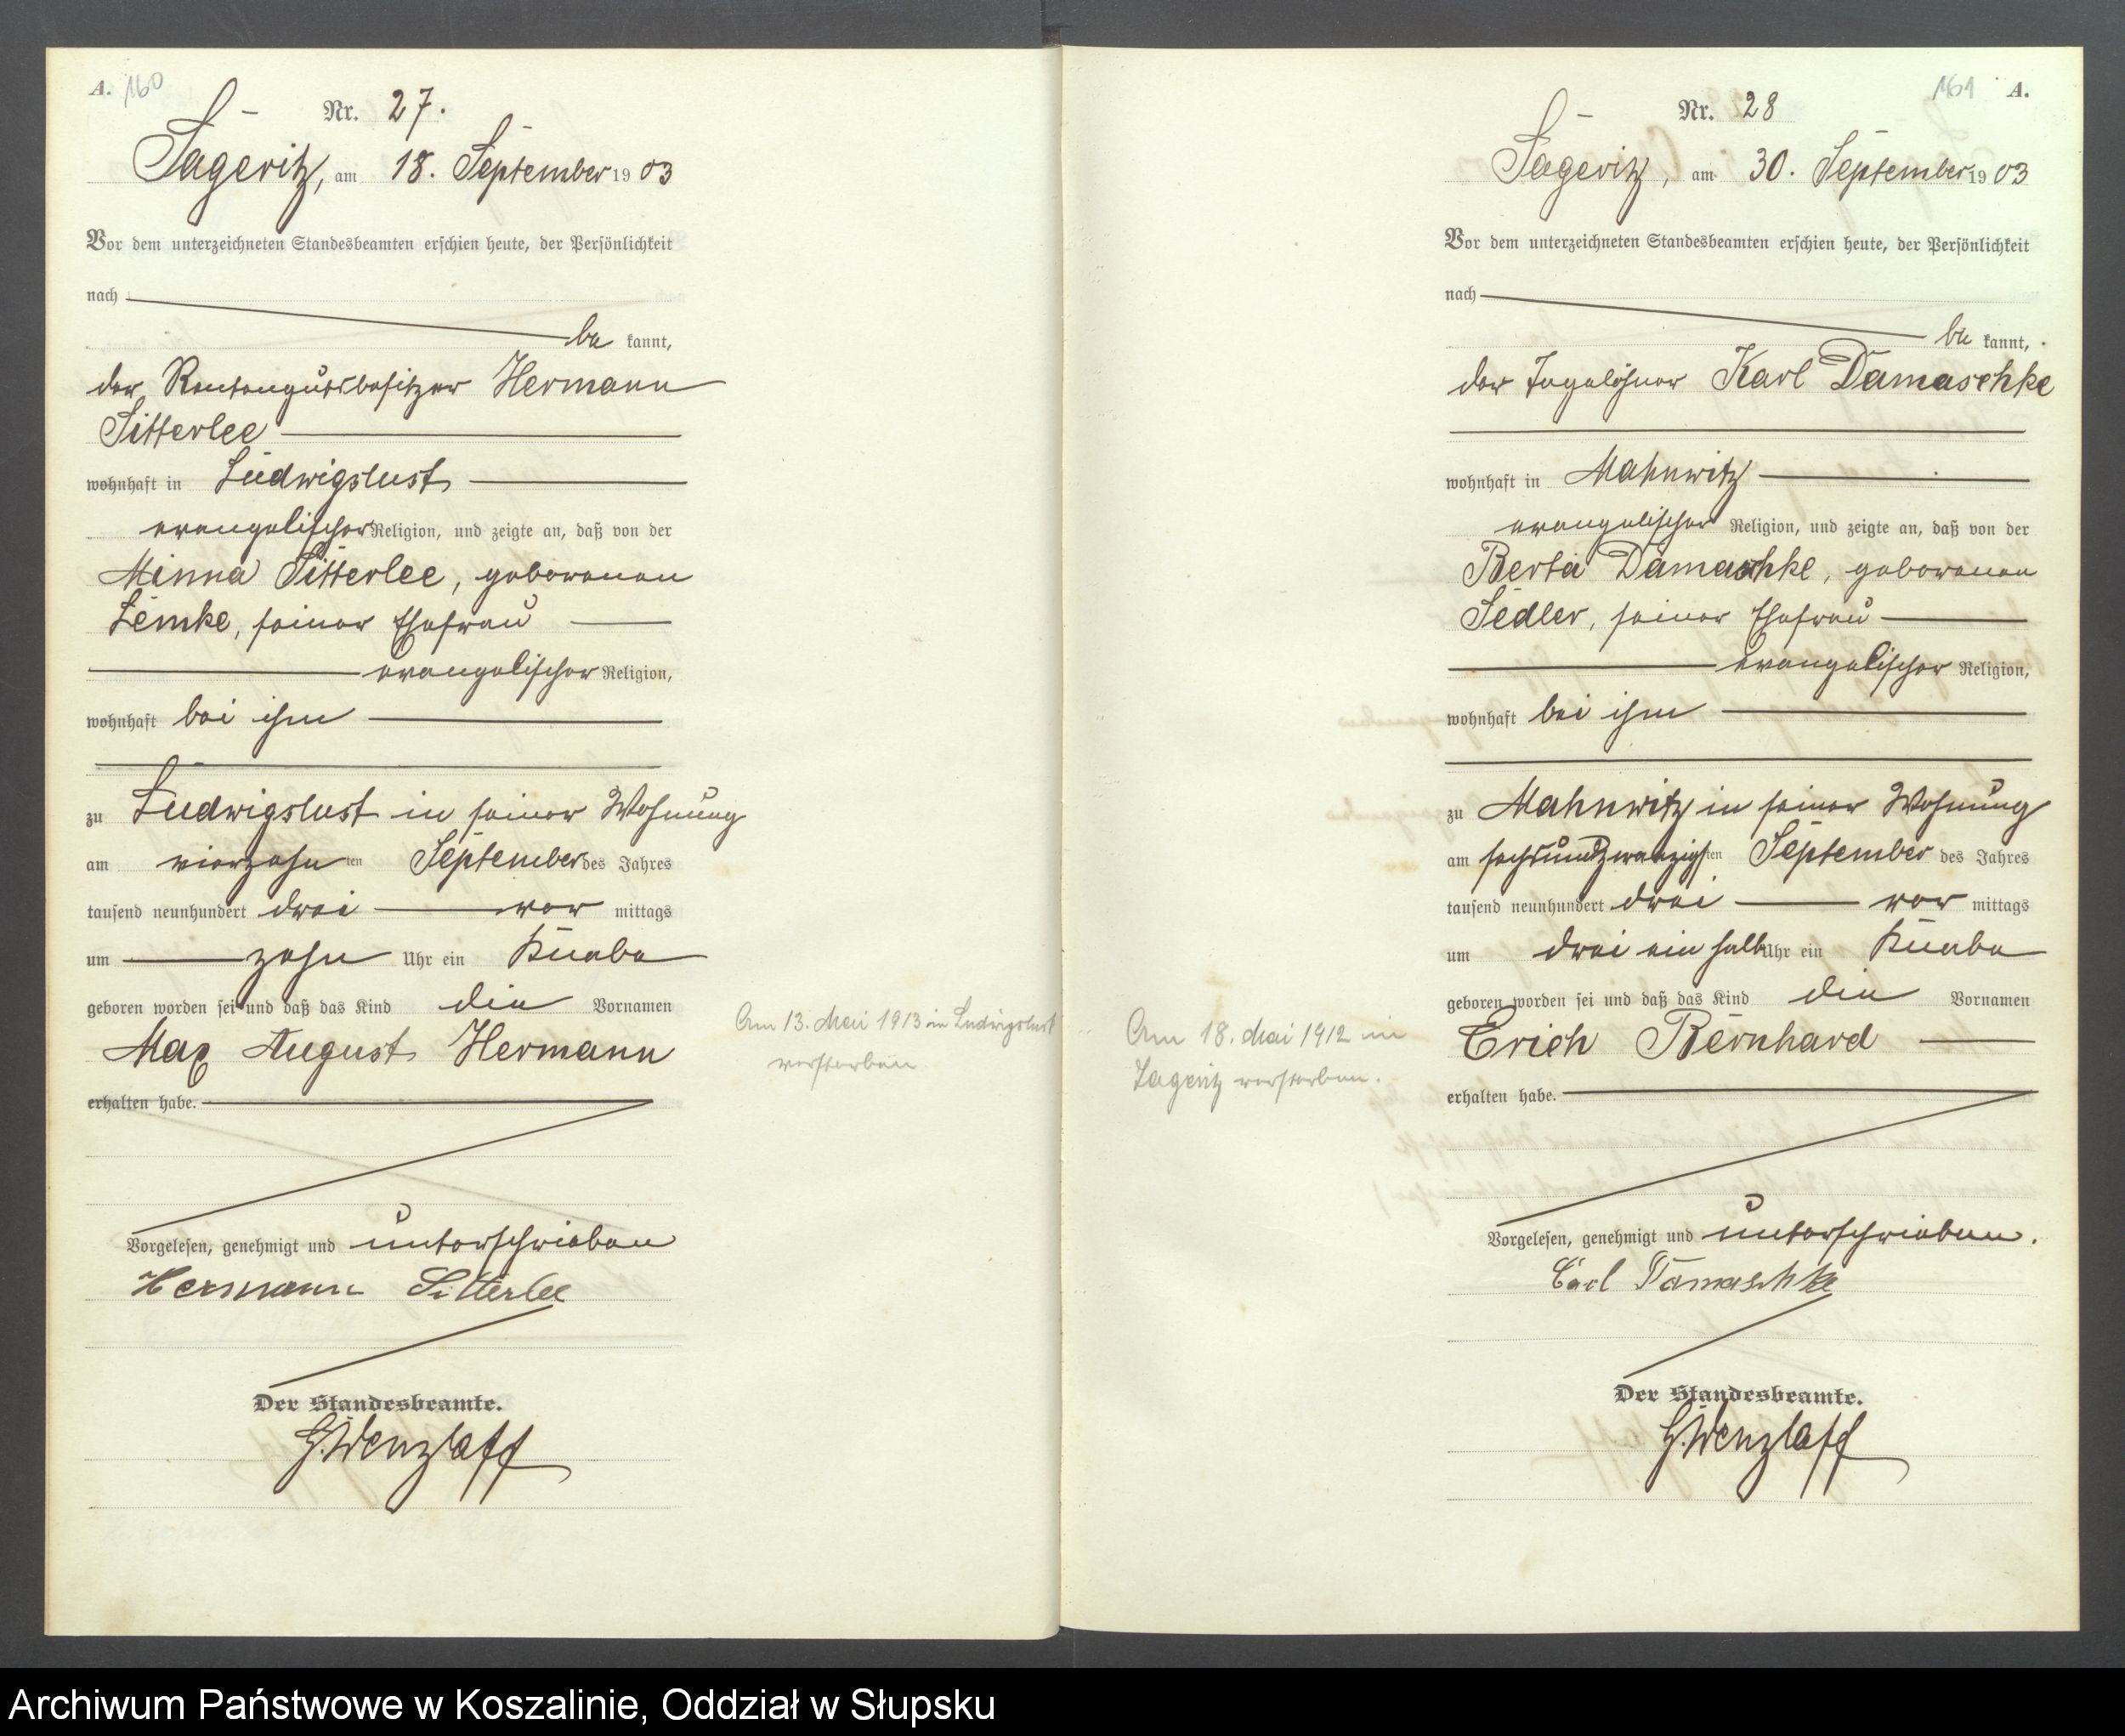 A. 160
Nr. 27.
Sageritz, am 18. September 1903
Vor dem unterzeichneten Standesbeamten erschien heute, der Persönlichkeit
nach
be kannt,
der Rentengutsbesitzer Hermann
Sitterlee
wohnhaft in Ludwigslust
evangelischer Religion, und zeigte an, daß von der
Minna Sitterlee, geborenen
Lemke, seiner Ehefrau
evangelischer Religion,
wohnhaft bei ihm
zu Ludwigslust in seiner Wohnung
am vierzehn ten September des Jahres
tausend neunhundert drei vor mittags
um zehn Uhr ein Knabe
geboren worden sei und daß das Kind die Vornamen
Max August Hermann
erhalten habe.
Vorgelesen, genehmigt und unterschrieben
Hermann Sitterlee
Der Standesbeamte.
G. Wenzlaff
Am 13. Mai 1913 in Ludwigslust
verstorben
161 A.
Nr. 28
Sageritz, am 30. September 1903
Vor dem unterzeichneten Standesbeamten erschien heute, der Persönlichkeit
nach
be kannt,
der Tagelöhner Karl Damaschke
wohnhaft in Mahnwitz
evangelischer Religion, und zeigte an, daß von der
Berta Damaschke, geborenen
Sedler, seiner Ehefrau
evangelischer Religion,
wohnhaft bei ihm
zu Mahnwitz in seiner Wohnung
am sechsundzwanzigsten September des Jahres
tausend neunhundert drei vor mittags
um drei ein halb Uhr ein Knabe
geboren worden sei und daß das Kind die Vornamen
Erich Bernhard
erhalten habe.
Vorgelesen, genehmigt und unterschrieben.
Carl Damaschke
Der Standesbeamte.
G. Wenzlaff
Am 18. Mai 1912 in
Sageritz verstorben.
Archiwum Państwowe w Koszalinie, Oddział w Słupsku